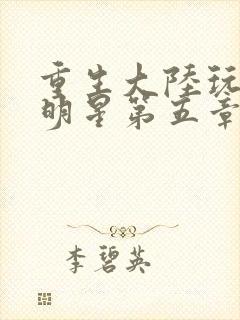 重生大陸玩
明星第五章
李碧英